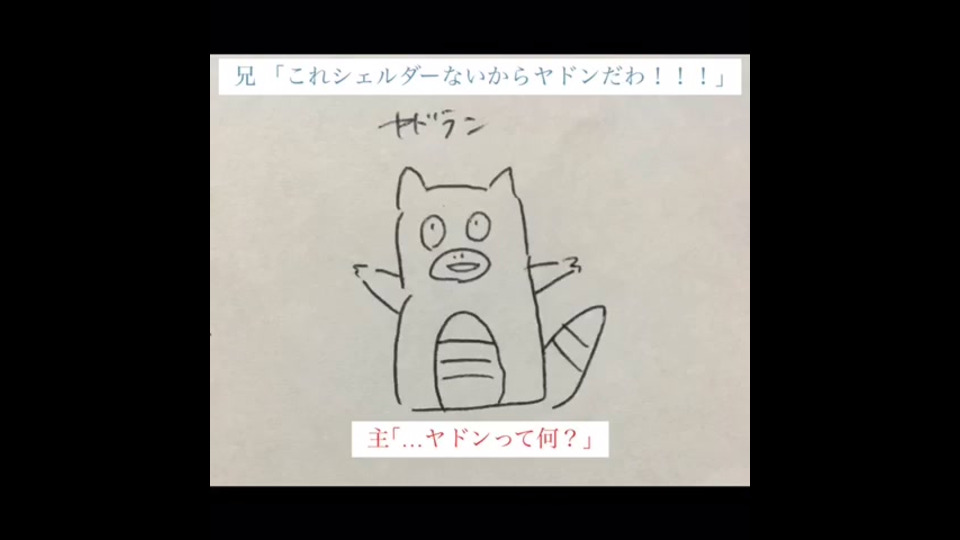 兄 「これシェルダーないからヤドンだわ！！！」
ヤドラン
主「…ヤドンって何？」